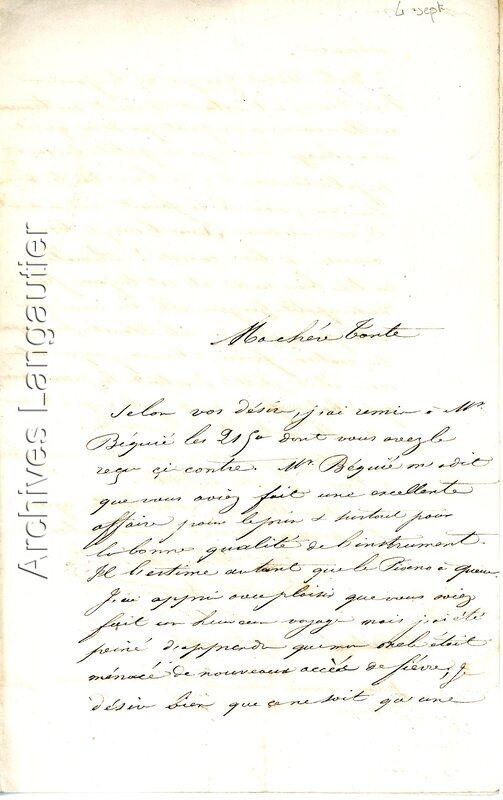 4 sept
Ma chére Tante
Selon vos désir, j'ai remis à Mr.
Béquié les 2150 dont vous avez le
reçu çi contre. Mr. Béquié m'a dit
que vous aviez fait une excellente
affaire pour le prix & surtout pour
la bonne qualité de l'instrument.
Il l'estime autant que le Piano à queue.
J'ai appri avec plaisir que vous aviez
fait un heureux voyage mais j'ai été
peiné d'apprendre que mon oncle était
ménacé de nouveaux accès de fiévre, je
désire bien que ça ne soit qu'une
Archives Langautier